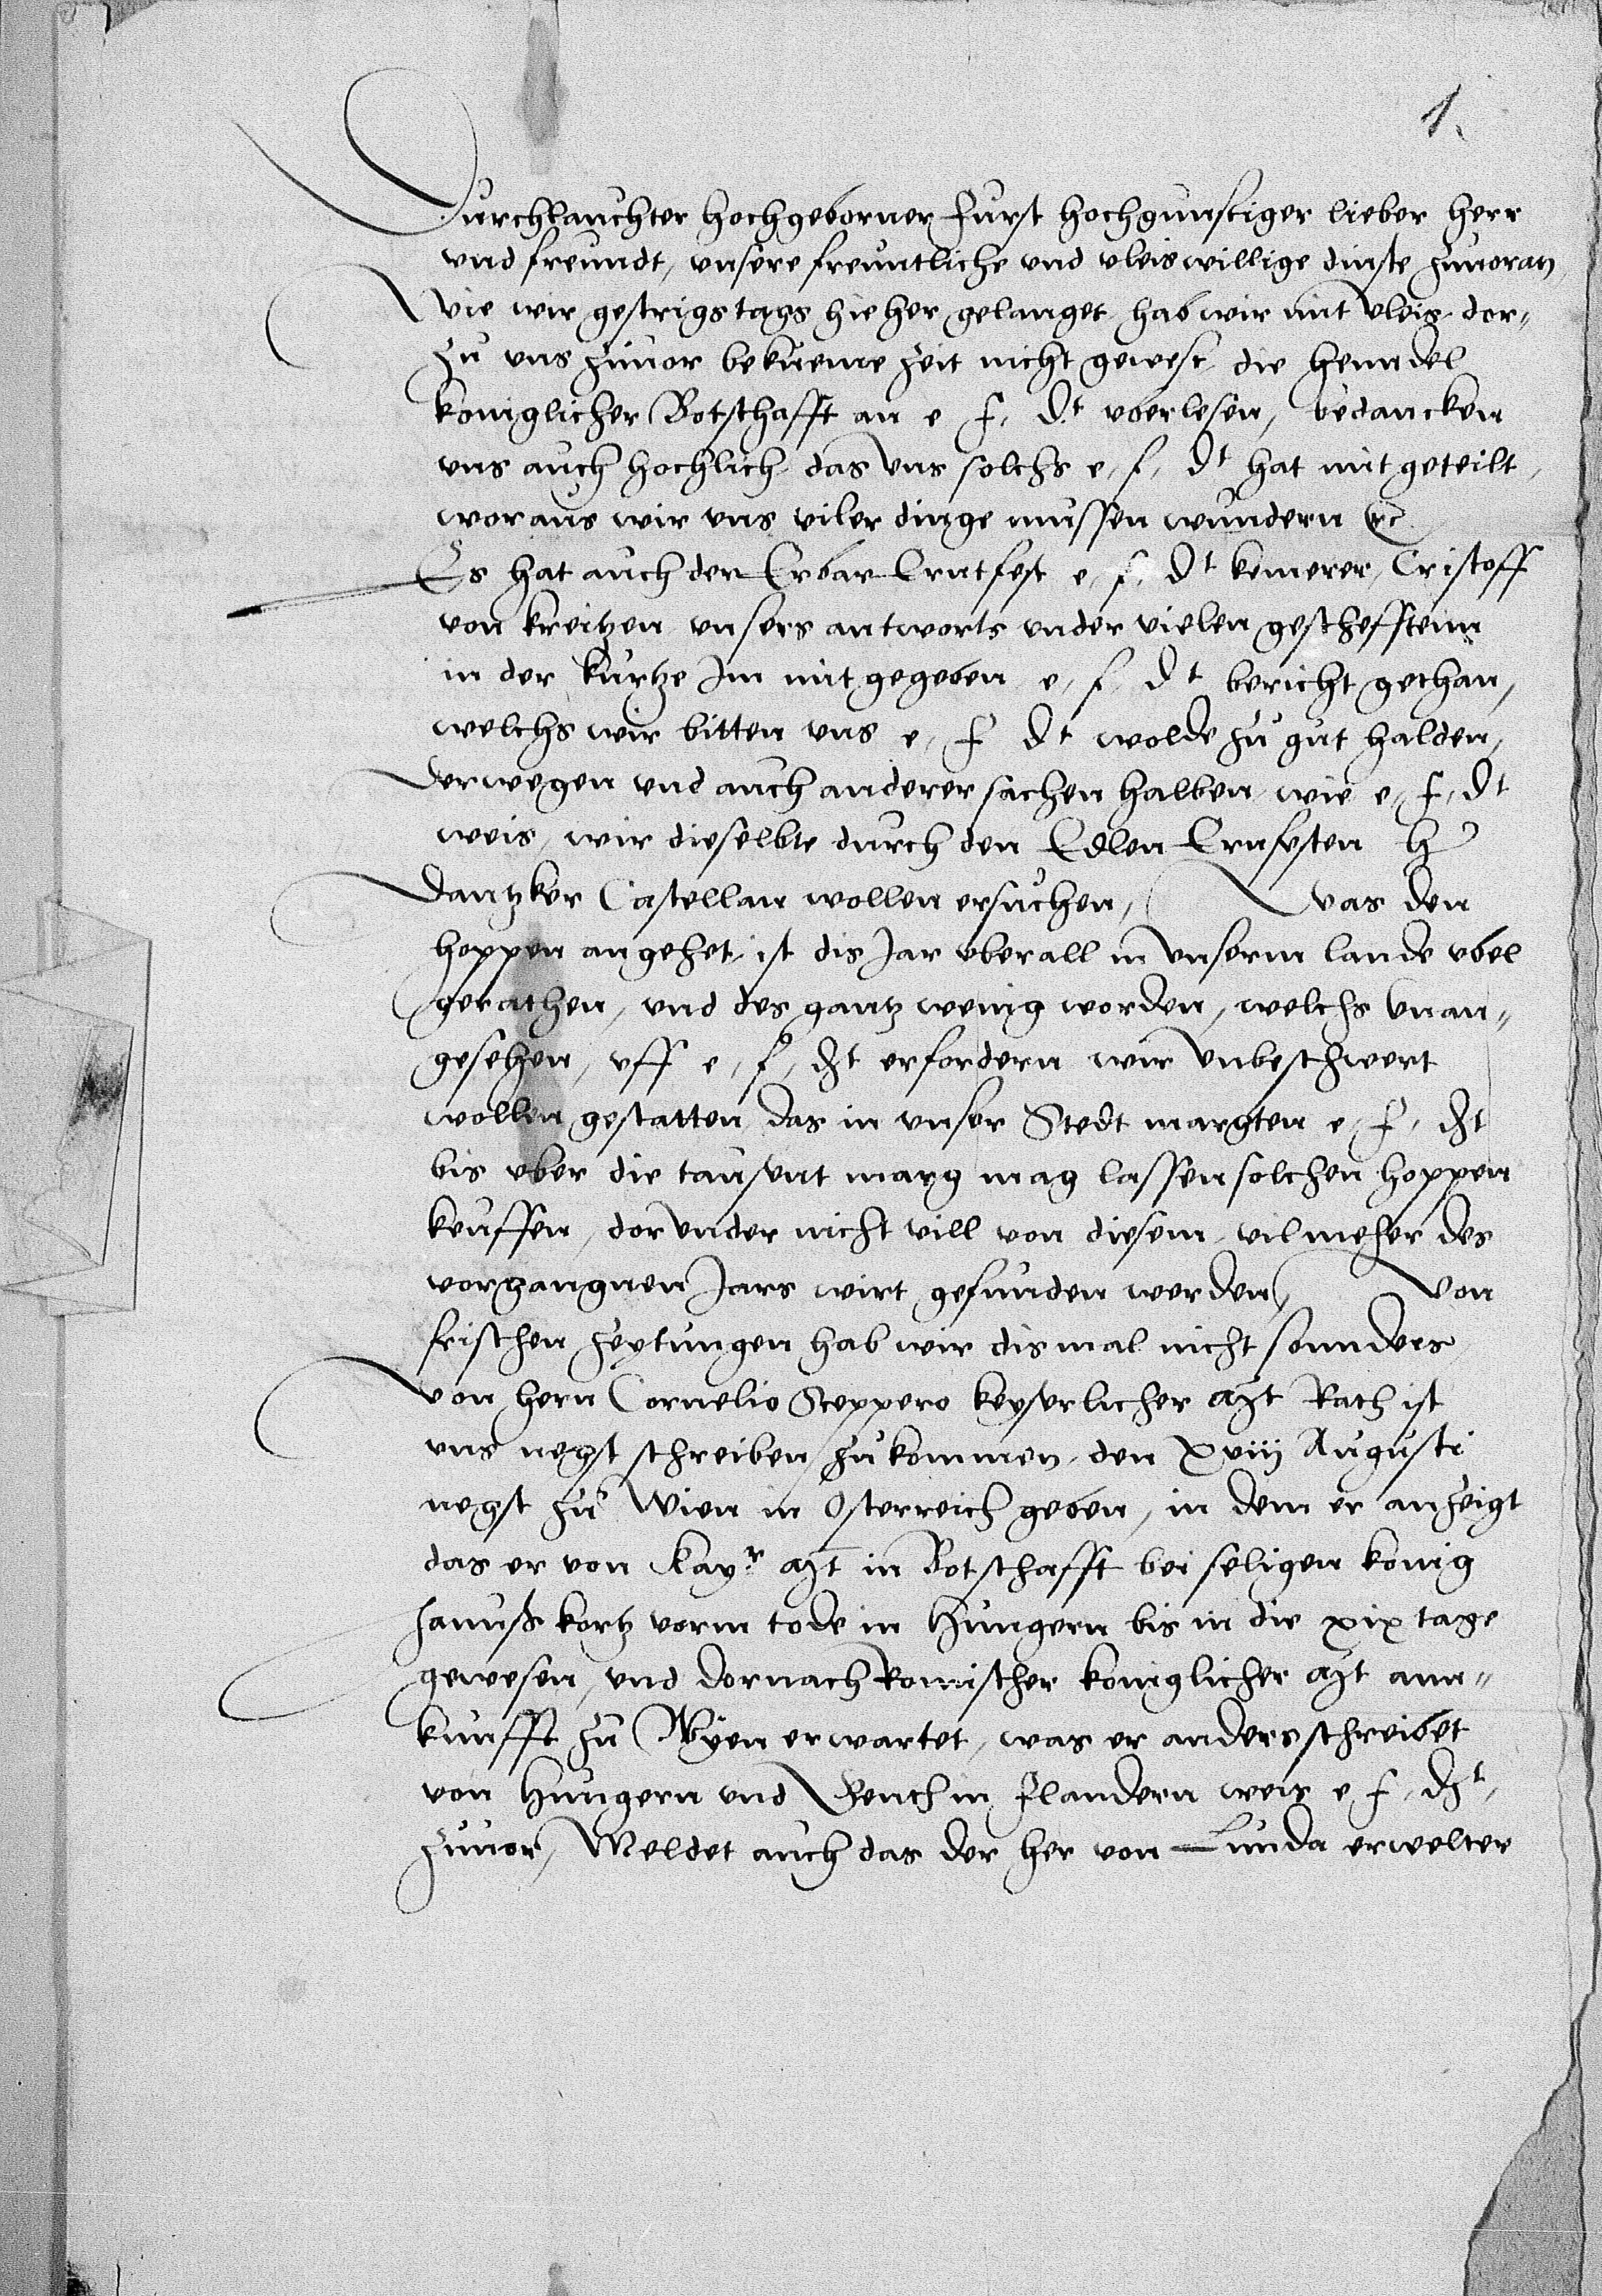 1.
Durchlauchter hochgeborner Furst hochgunstiger lieber herr
vnd freundt, vnsere freuntliche vnd vleiswillige dinste zuuoran,
Wie wir gestrigs tags hieher gelanget hab wir mit vleis dor„
zu vns zuuor bekueme zeit nicht gewest die henndel
koniglicher Botschafft an e f. dt vberlesen, bedancken
vns auch hochlich das vns solchs e, f, dt hat mit geteilt,
woraus wir vns viler dinge mussen wundern etc
Es hat auch der Erbar Erntfest e, f, dt kemerer, Cristoff
von kreitzen vnsers antworts vnder vielen gescheffteinn
in der kurtze Im mit gegeben e, f, dt bericht gethan,
welchs wir bitten vns e, f dt wolde zu gut halden,
Derwegen vnd auch anderer sachen halben wie e, f, dt
weis, wir dieselbte durch den Edlen Ernfesten h
Dantzker Castellan wollen ersuchen, Was den
hoppen angehet, ist dis Jar vberall in vnserm lande vbel
gerathen, vnd des gantz wenig worden, welchs vnan„
gesehen, vff e, f, dt erfordern wir vnbeschwert
wollen gestatten das in vnser Stedt margten e, f, dt
bis vber die tausent marg mag lassen solchen hoppen
keuffen, dorvnder nicht vill von diesem, vilmeher des
vorgangnen Jars wirt gefunden werden, Von
frischen zeytungen hab wir dismal nicht sonnders
Von hern Cornelio Sceppero keyserlicher Mt Rath ist
vns negst schreiben zukommen, den xviij Augusti
negst zu Wien in Osterreich geben, in dem er anzeigt
das er von Kayr Mt in Botschafft bei seligen konig
Hanuß kortz vorm tode in Hungern bis in die xix tage
gewesen, vnd dornach Romischer koniglicher Mt ann„
kunfft zu Wyen erwartet, was er anders schreibet
von Hungern vnd Gent in Flandern weis e, f, dt,
zuuor, Meldet auch das der her von Lunda erwelter